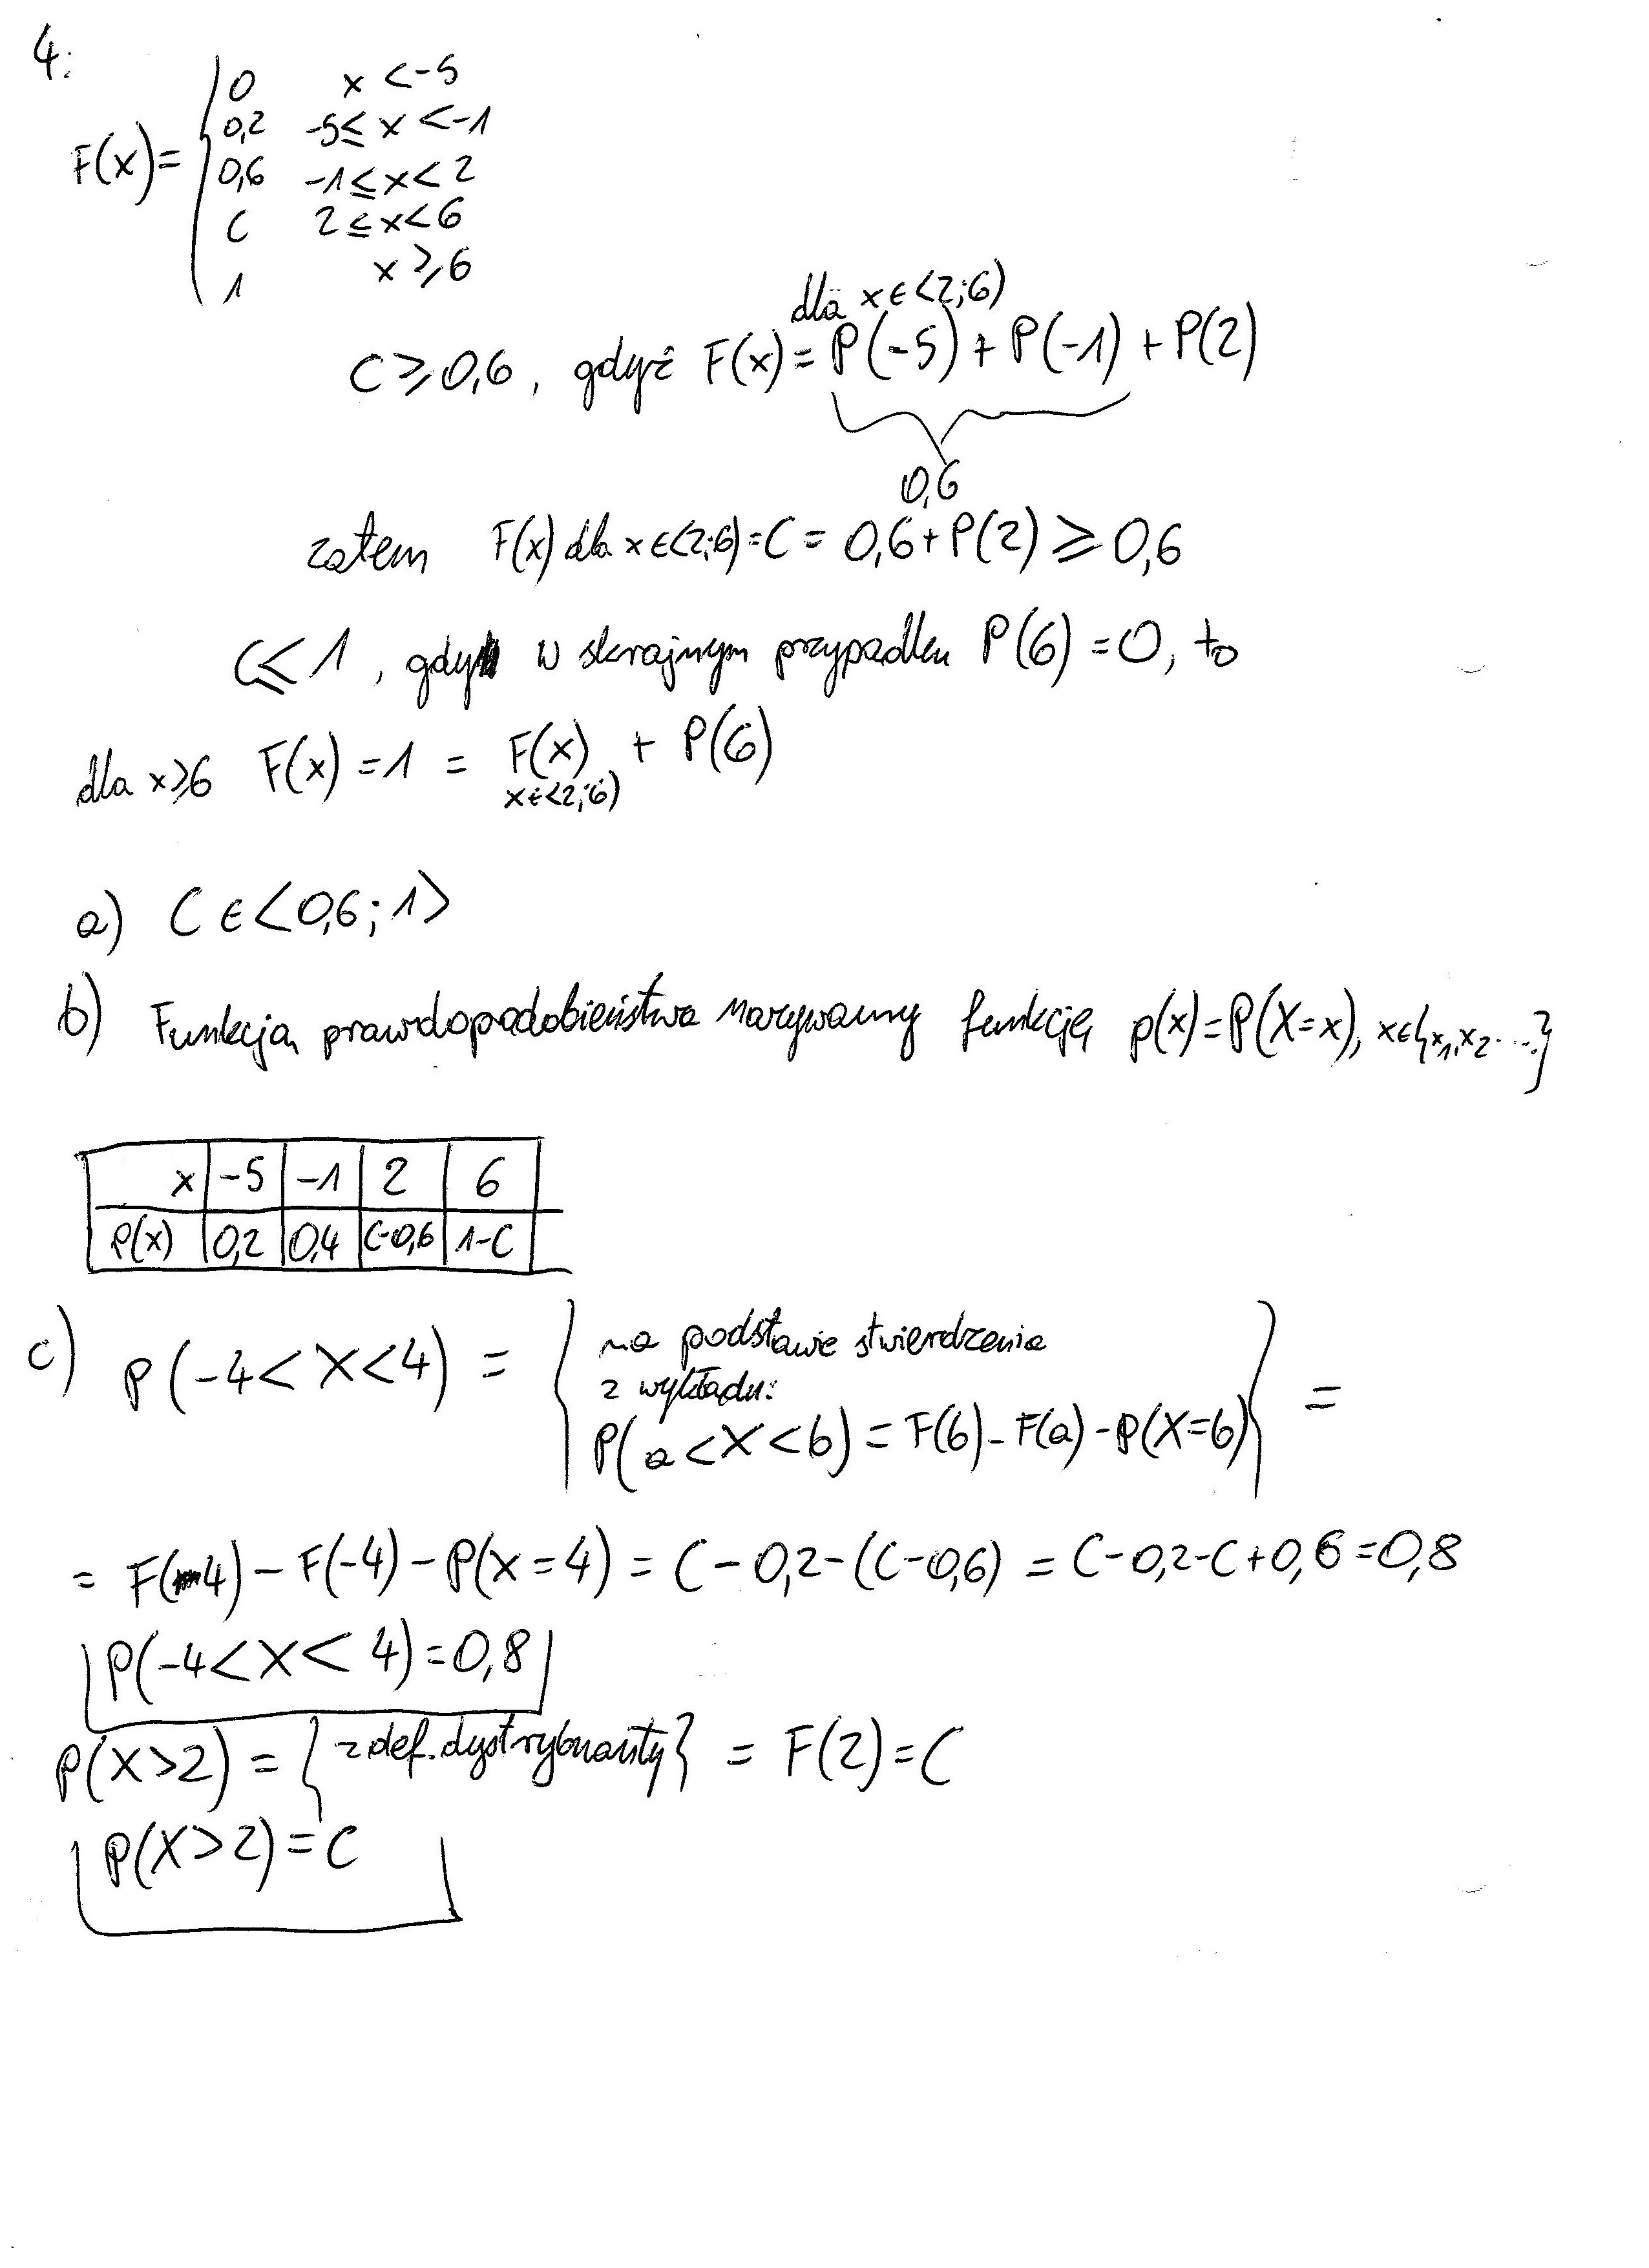 4.
F(x) = { 0 x < -5
0,2 -5 ≤ x < -1
0,6 -1 ≤ x < 2
C 2 ≤ x < 6
1 x ≥ 6
dla x ∈ <2;6)
C ≥ 0,6, gdyż F(x) = P(-5) + P(-1) + P(2)
0,6
zatem F(x) dla x ∈ <2;6) = C = 0,6 + P(2) ≥ 0,6
C ≤ 1, gdy w skrajnym przypadku P(6) = 0, to
dla x ≥ 6 F(x) = 1 = F(x) + P(6)
x ∈ <2;6)
a) C ∈ <0,6; 1>
b) Funkcją prawdopodobieństwa nazywamy funkcję p(x) = P(X = x), x ∈ {x₁, x₂ ...}
x -5 -1 2 6
P(x) 0,2 0,4 C-0,6 1-C
c) P(-4 < X < 4) = { na podstawie stwierdzenia
z wykładu:
P(a < X < b) = F(b) - F(a) - P(X = b) } =
= F(4) - F(-4) - P(x = 4) = C - 0,2 - (C - 0,6) = C - 0,2 - C + 0,6 = 0,8
P(-4 < X < 4) = 0,8
P(X > 2) = { z def. dystrybuanty } = F(2) = C
P(X > 2) = C